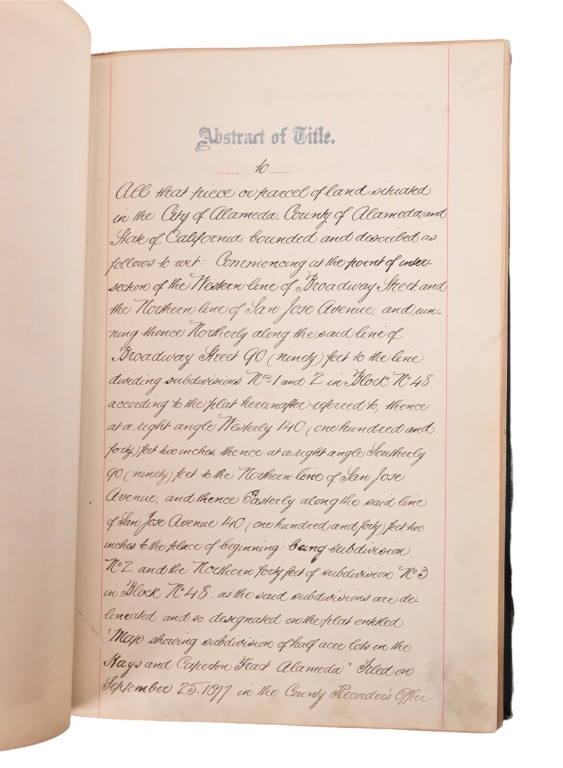 Abstract of Title.
to
All that piece or parcel of land situated
in the City of Alameda, County of Alameda and
State of California bounded and described as
follows to wit: Commencing at the point of inter-
section of the Western line of Broadway Street and
the Northern line of San Jose Avenue, and run-
ning thence Northerly along the said line of
Broadway Street 90 (ninety) feet to the line
dividing subdivisions Nos. 1 and 2 in Block No 48
according to the plat hereinafter referred to, thence
at a right angle Westerly 140 (one hundred and
forty) feet two inches, thence at a right angle Southerly
90 (ninety) feet to the Northern line of San Jose
Avenue, and thence Easterly along the said line
of San Jose Avenue 140 (one hundred and forty) feet two
inches to the place of beginning being subdivision
No 2 and the Northern forty feet of subdivision No 3
in Block No 48, as the said subdivisions are de-
lineated and so designated on the plat entitled
"Map showing subdivision of half acre lots in the
Hays and Caperton Tract Alameda" Filed on
September 25. 1877 in the County Recorder's Office